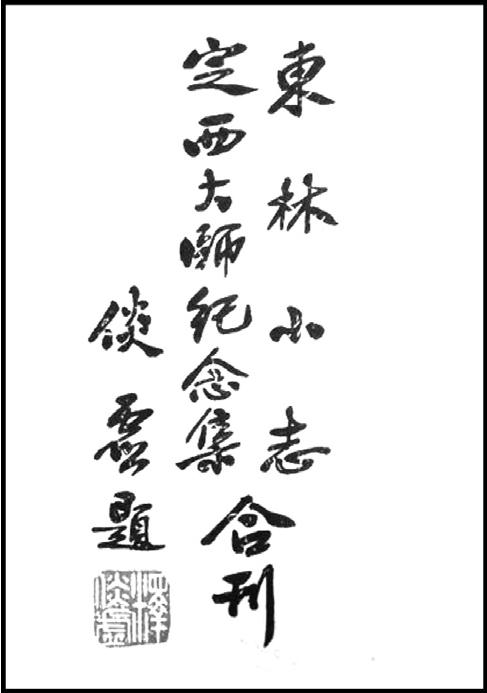 東林小志
定西大師紀念集
合刊
倓虛題
釋倓虛